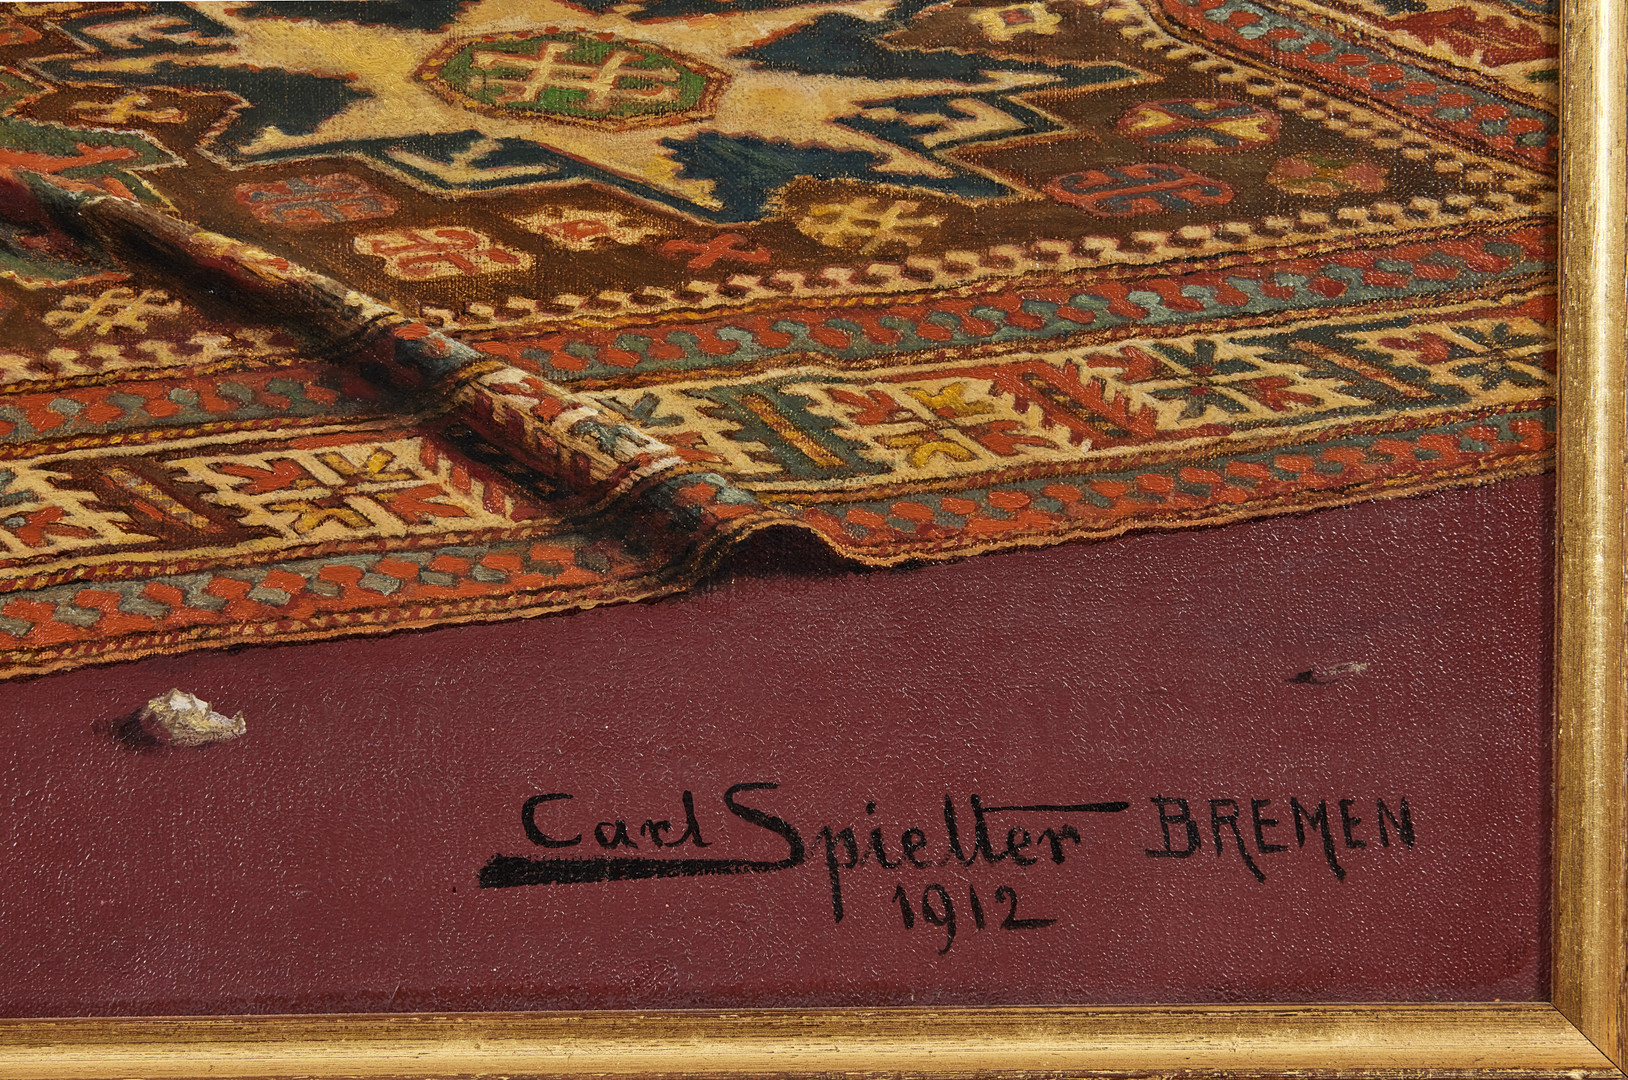 Carl Spielter BREMEN
1912